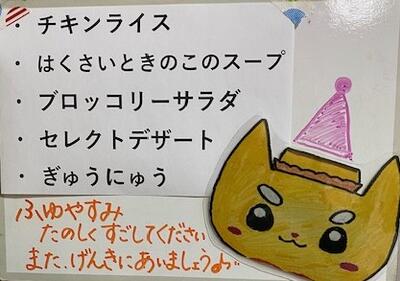 ・ チキンライス
・ はくさいときのこのスープ
・ ブロッコリーサラダ
・ セレクトデザート
・ ぎゅうにゅう
ふゆやすみ
たのしくすごしてください
また、げんきにあいましょう♪